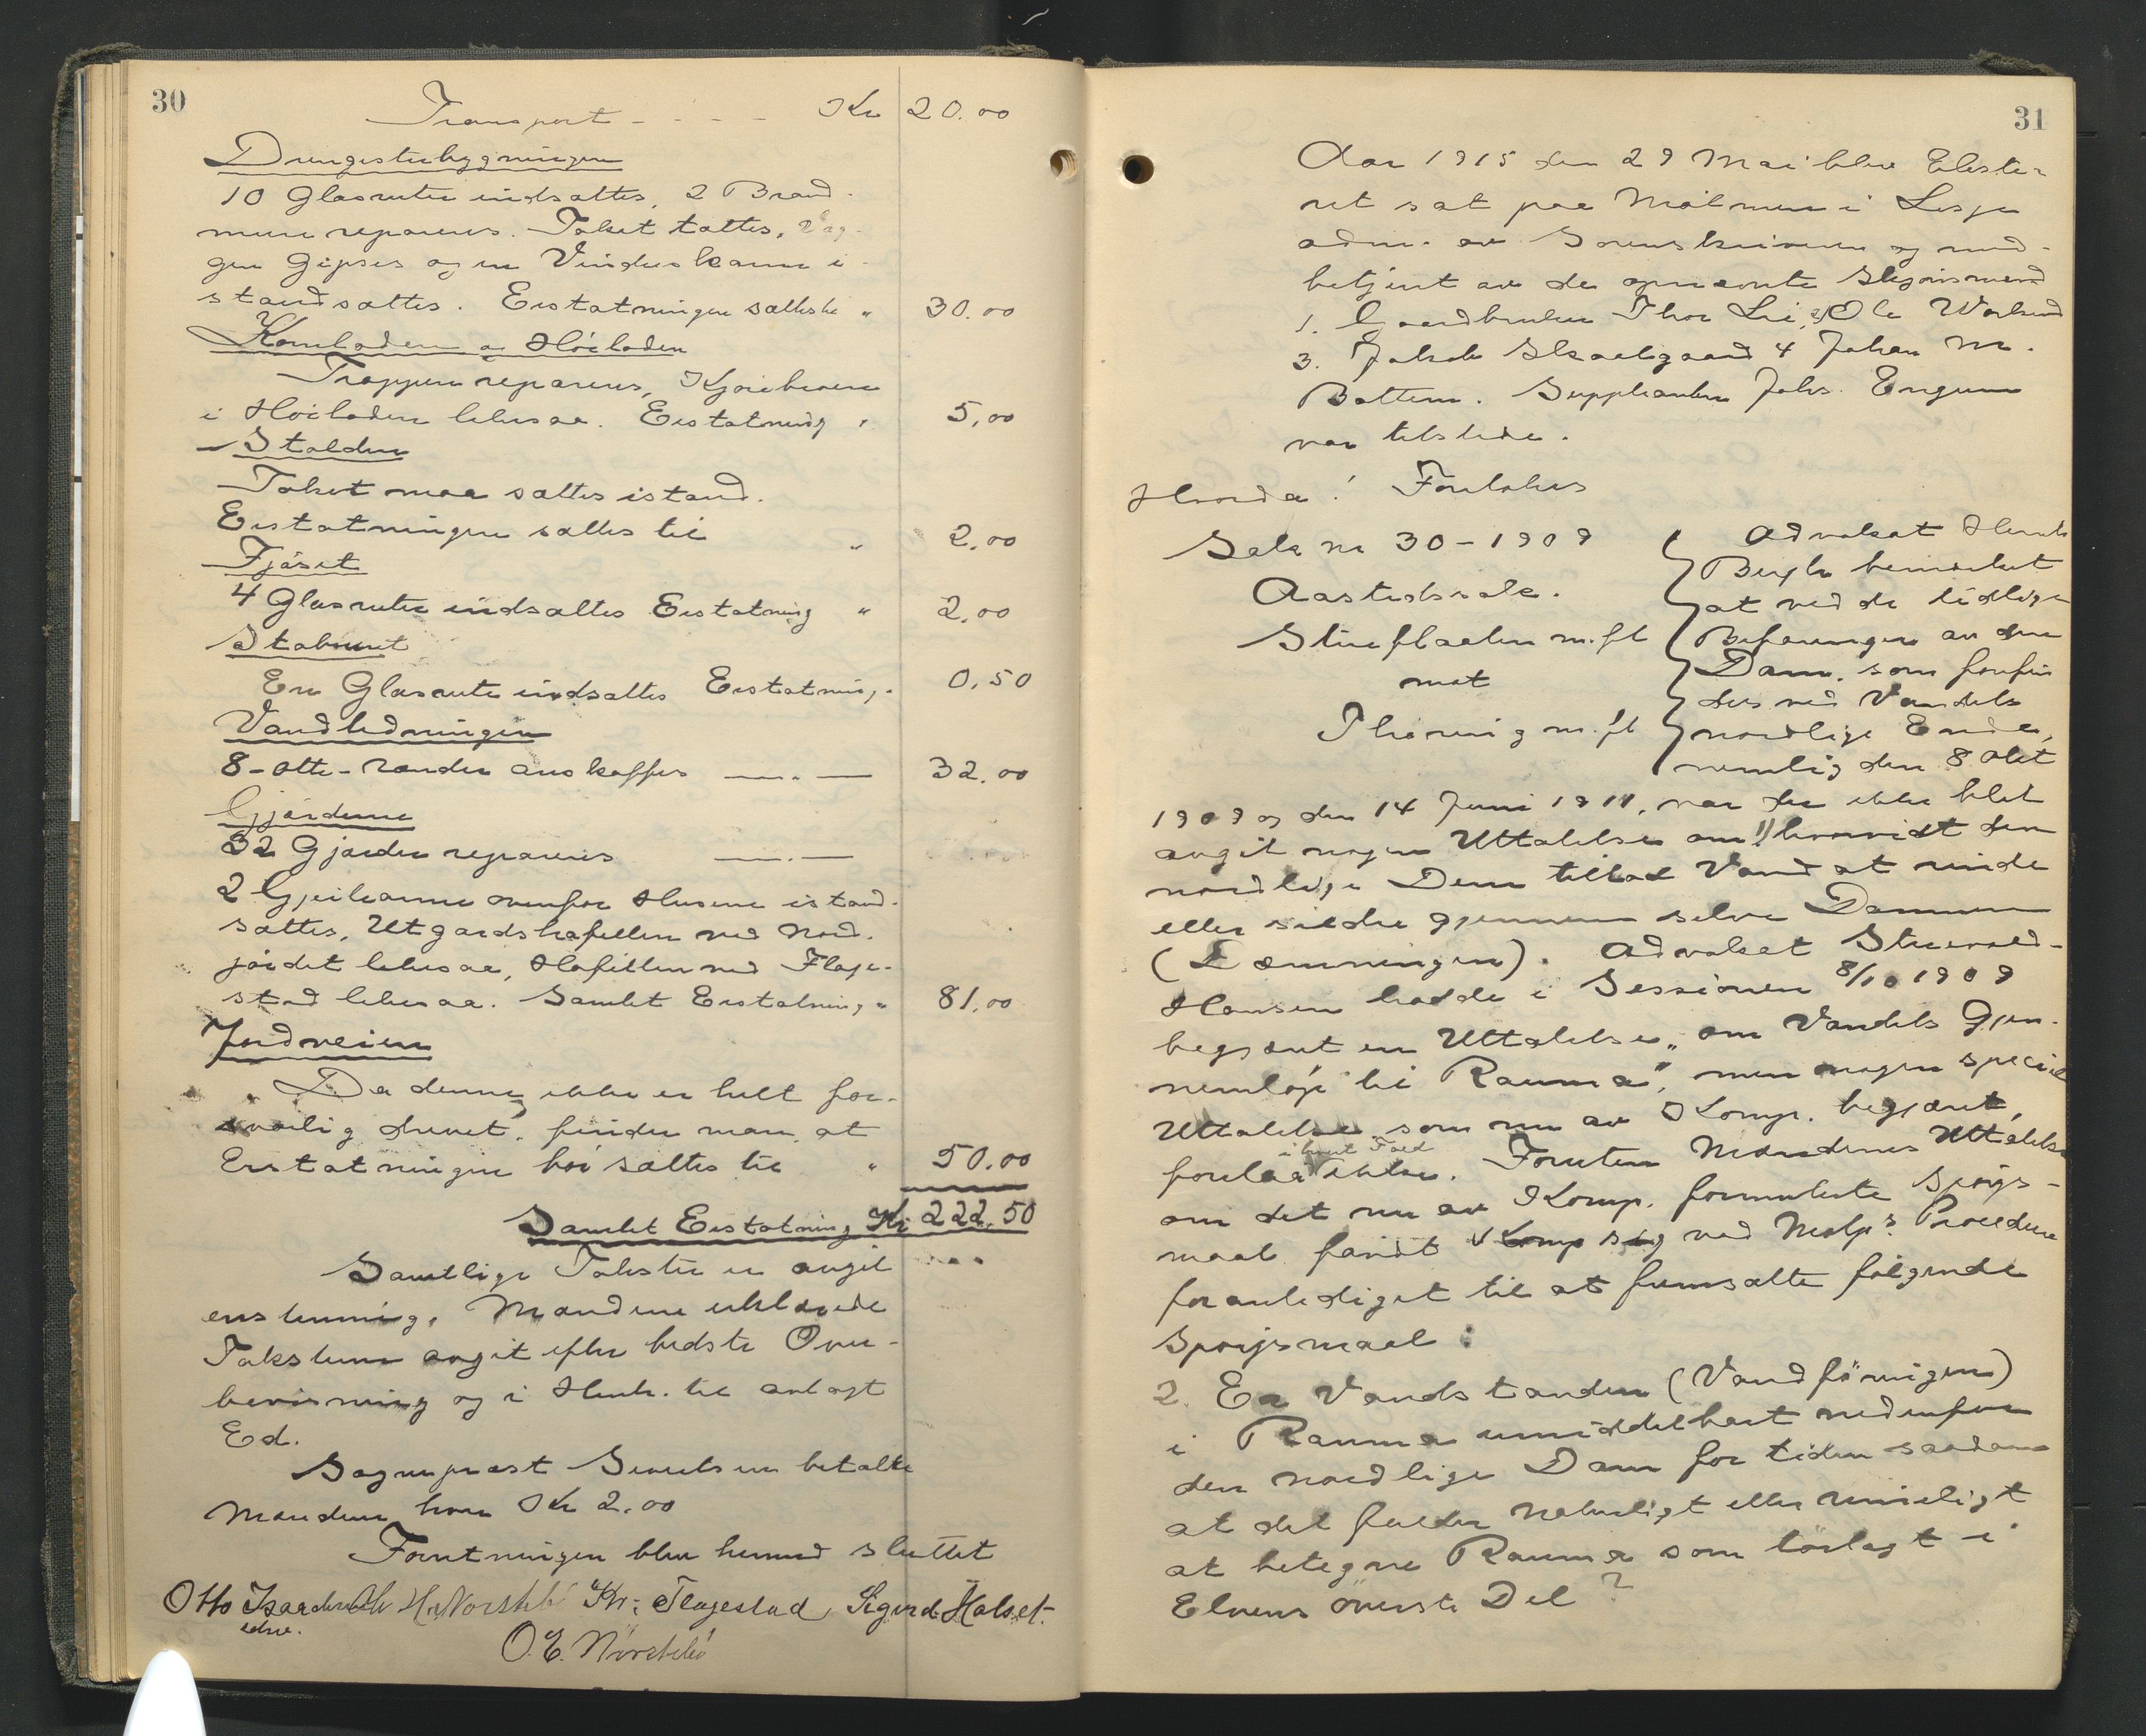 30
Transport - - - - Kr 20.00
Drengestubygningen
10 Glasruter indsættes, 2 Brand-
mure repareres. Taket tættes, Væg-
gen gipses og en Vindueskarm i-
standsættes. Erstatningen sættes til " 30.00
Kornladen og Höiladen
Trappen repareres, Kjörebroen
i Höiladen likesaa. Erstatning " 5,00
Stalden
Taket maa sættes istand.
Erstatningen sættes til " 2,00
Fjöset
4 Glasruter indsættes Erstatning " 2,00
Stabburet
En Glasrute indsættes Erstatning " 0,50
Vandledningen
8-otte-render anskaffes —"— 32.00
Gjærderne
32 Gjærder repareres —"—
2 Gjeilearme ovenfor Husene istand-
sættes, Utgardshafellen ved Nord-
jordet likesaa, Hafellen ved Flage-
stad likesaa. Samlet Erstatning " 81,00
Jordveien
Da denne ikke er helt for-
svarlig drevet, finder man, at
Erstatningen bör sættes til " 50.00
Samlet Erstatning Kr 222,50
Samtlige Takster er avgit
enstemmig. Mændene erklærede
Taksterne avgit efter bedste Over-
bevisning og i Henh. til avlagt
Ed.
Sogneprest Sivertsen betalte
Mændene hver Kr 2.00
Forretningen blev hermed sluttet
Otto Isaachsen H. Norstebö Kr: Flagestad Sigurd Halset.
edsv.
O. E. Nörstebö
31
Aar 1915 den 29 Mai blev Ekstra-
ret sat paa Mölmen i Lesje
adm. av Sorenskriveren og med-
betjent av de opnævnte Skjönsmænd
1. Gaardbruker Thor Lie, 2) Ole
3. Jakob Skaalgaard 4 Johan M.
Bottem. Suppleanten Johs. Engum
var tilstede.
Hvorda! Foretokes
Sak nr 30-1909
Aastedssak.
Stueflaaten m.fl
mot
Thöring m.fl
Advokat Henrik
Bergh bemærket
at ved de tidligere
Befaringer av den
Dam, som forefin-
des ved Vandets
nordlige Ende,
nemlig den 8 Okt
1909 og den 14 Juni 1911, var der ikke blet
avgit nogen Uttalelse om 1) hvorvidt den
nordlige Dam tillot Vand at rinde
eller sildre gjennem selve Dammen
(Dæmningen). Advokat Struevold-
Hansen hadde i Sessionen 8/10 1909
begjært en Uttalelse „om Vandets Gjen-
nemlöp til Rauma", men nogen speciel
Uttalelse som nu av Komp. begjæret,
forelaa i hvert Fald ikke. Foruten Mændenes Uttalelse
om det nu av Komp. formulerte Spörgs-
maal fandt Komp sig ved Motp's Procedure
foranlediget til at fremsætte fölgende
Spörgsmaal:
2. Er Vandstanden (Vandföringen)
i Rauma umiddelbart nedenfor
den nordlige Dam for tiden saadan
at det falder naturligt eller rimeligt
at betegne Rauma som törlagt i
Elvens överste Del?